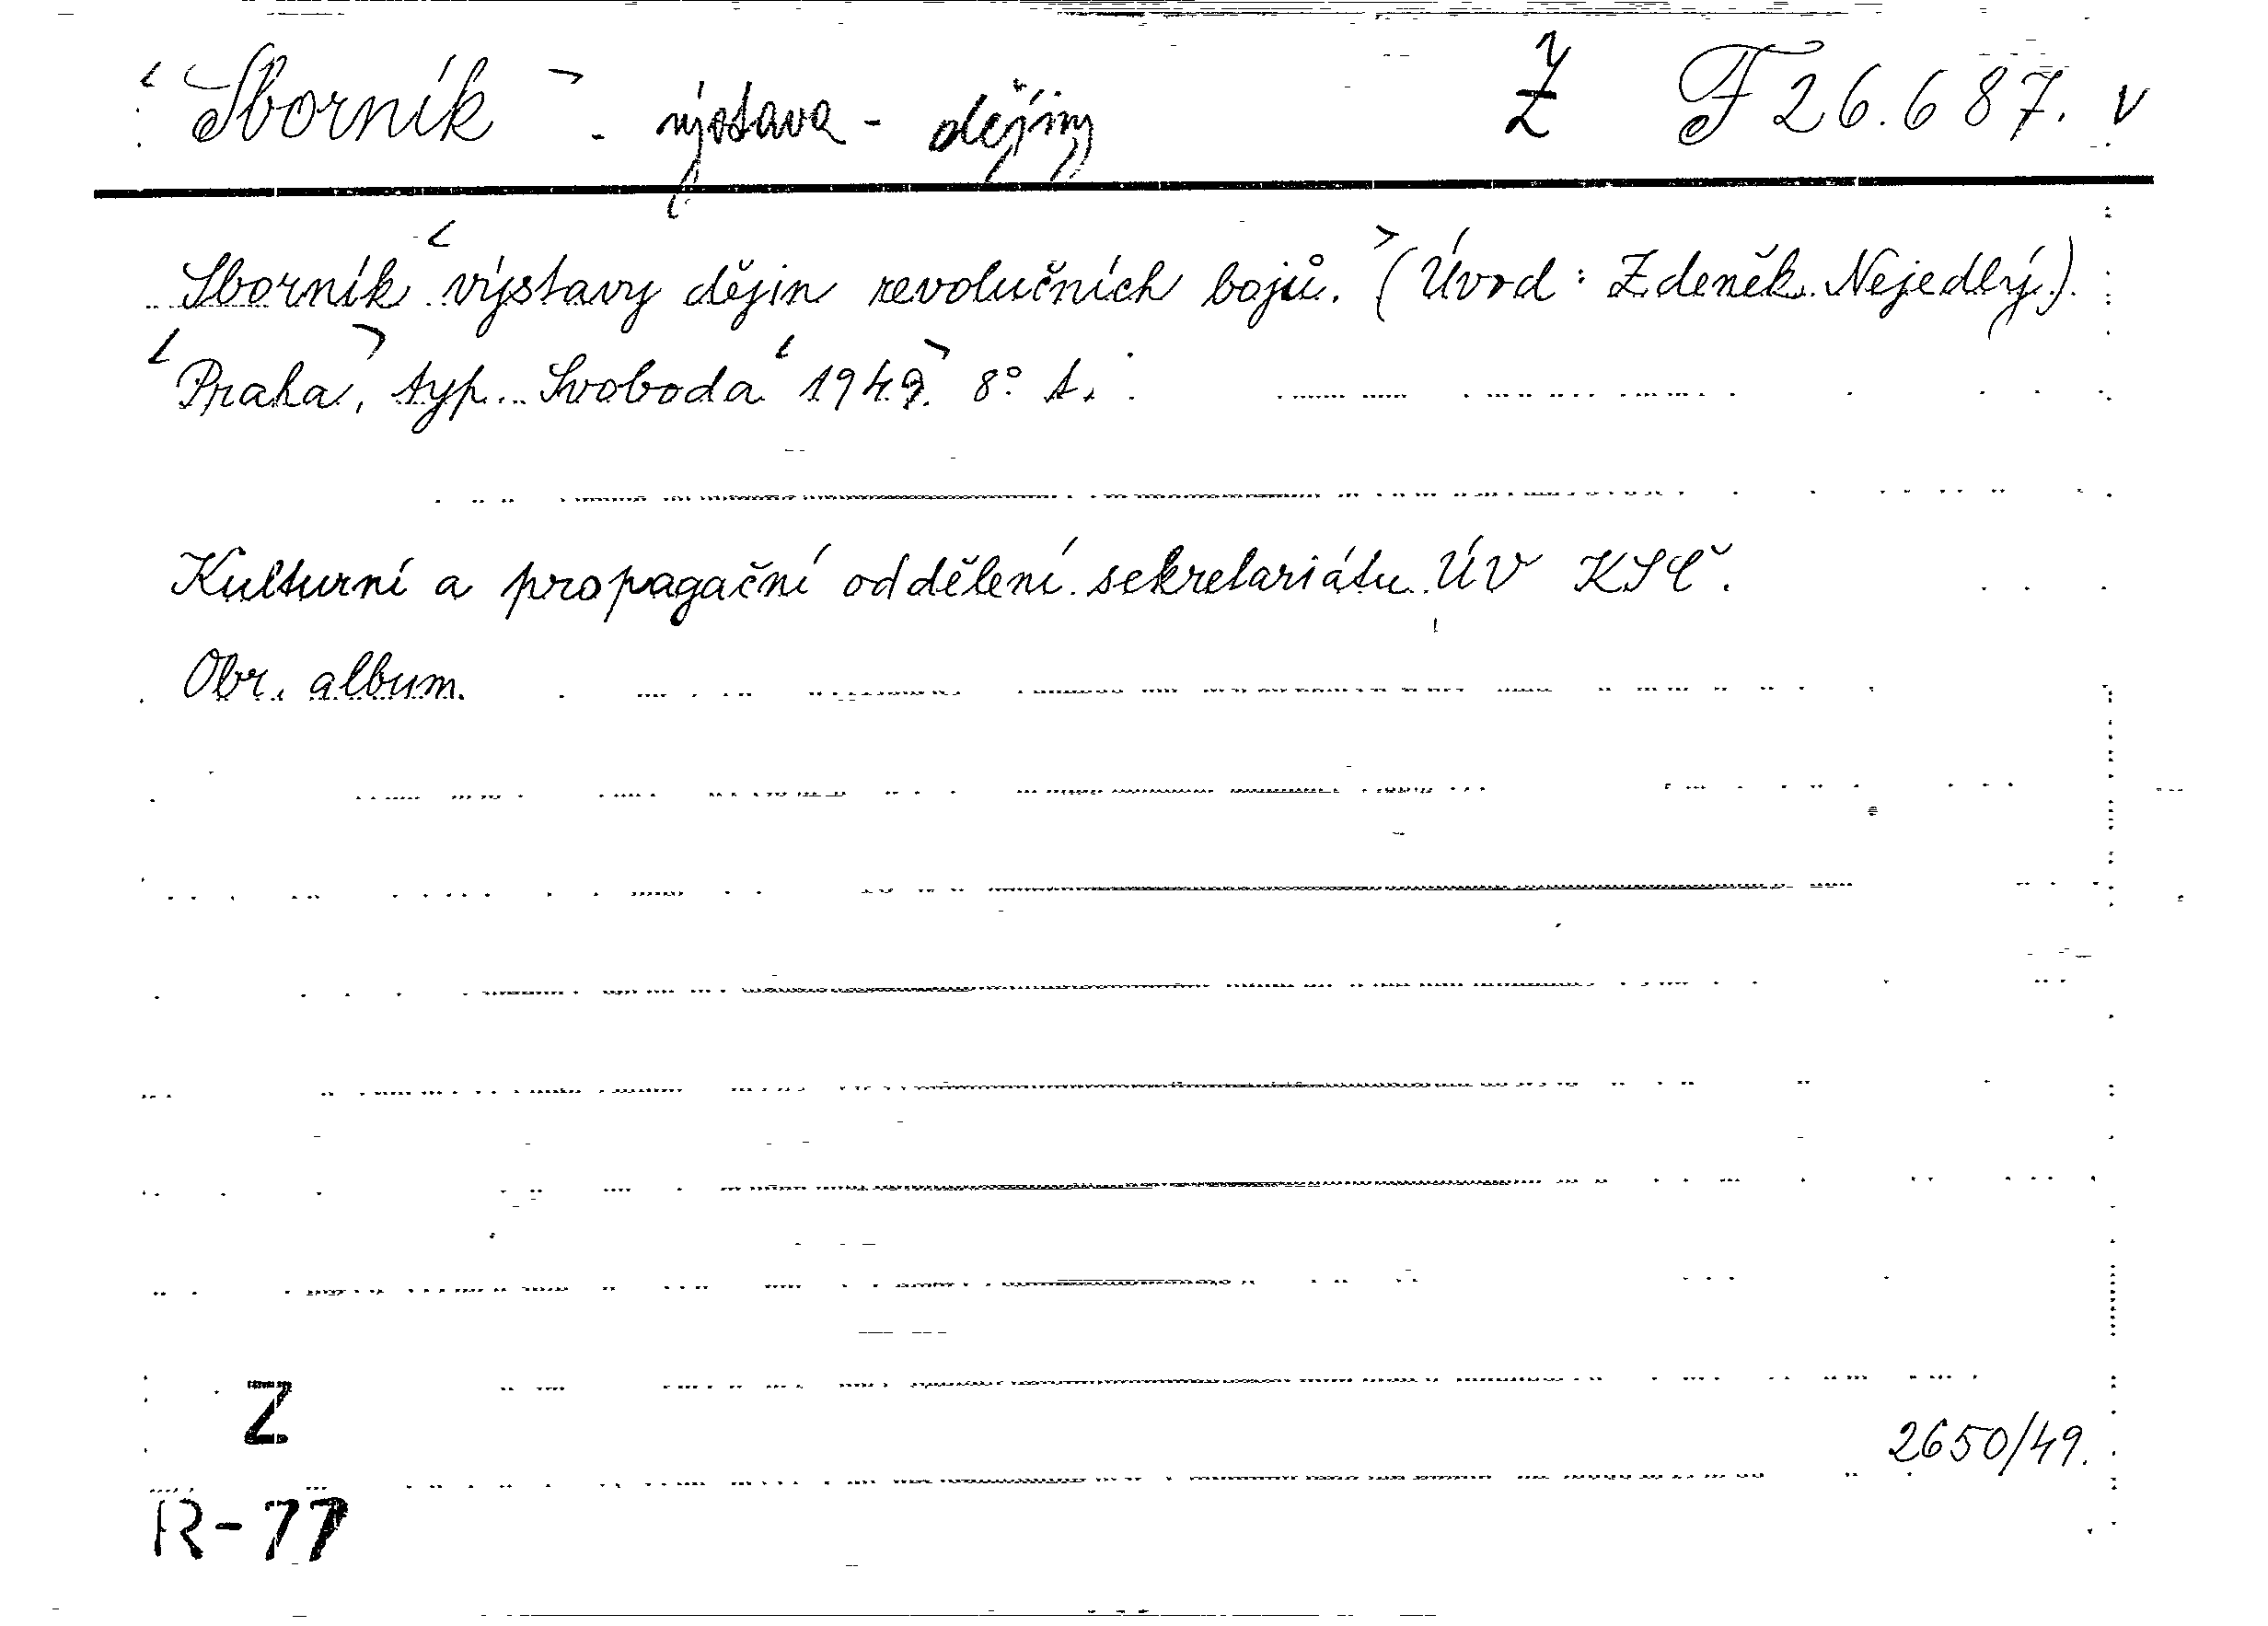 <Sborník> - výstava - dějiny Ž F 26.687. v
Sborník <výstavy dějin revolučních bojů.> (Úvod: Zdeněk Nejedlý.)
<Praha>, typ. Svoboda <1949.> 8° t.
Kulturní a propagační oddělení sekretariátu ÚV KSČ.
Obr. album.
Z
2650/49.
R-77